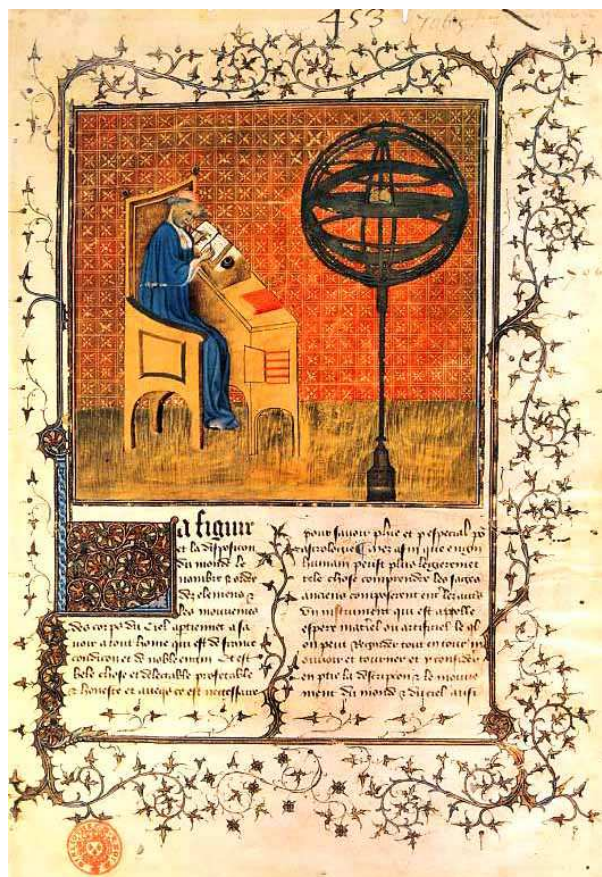 453
7065
La figure
et la disposicion
du monde le
nombre & ordre
des elemens &
les mouvemens
des corps du ciel a sa
voir a tout home qui est de france
condicion et de noble engin Et est
bele chose et delectable profetable
& honeste et ce est necessaire
pour savoir plus et p especial po
astrologie afin que engin
humain peust plus legierement
tele chose comprendre les sages
anciens composerent
un instrument qui est appelle
espere materiel ou artificiel le ql
on peut regarder tout entour
mouvoir et tourner et y considerer
en ptie la descripcion & le mouve
ment du monde & du ciel aussi